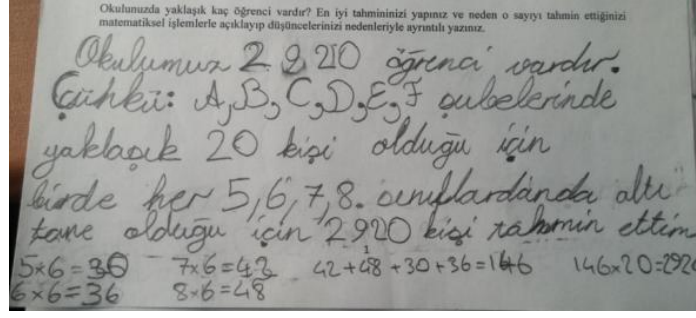 Okulunuzda yaklaşık kaç öğrenci vardır? En iyi tahmininizi yapınız ve neden o sayıyı tahmin ettiğinizi
matematiksel işlemlerle açıklayıp düşüncelerinizi nedenleriyle ayrıntılı yazınız.
Okulumuz 2.920 öğrenci vardır.
Çünkü: A,B,C,D,E,F şubelerinde
yaklaşık 20 kişi olduğu için
birde her 5,6,7,8. sınıflardanda altı
tane olduğu için 2920 kişi tahmin ettim
5x6=30 7x6=42 42+48+30+36=146 146x20=292
6x6=36 8x6=48